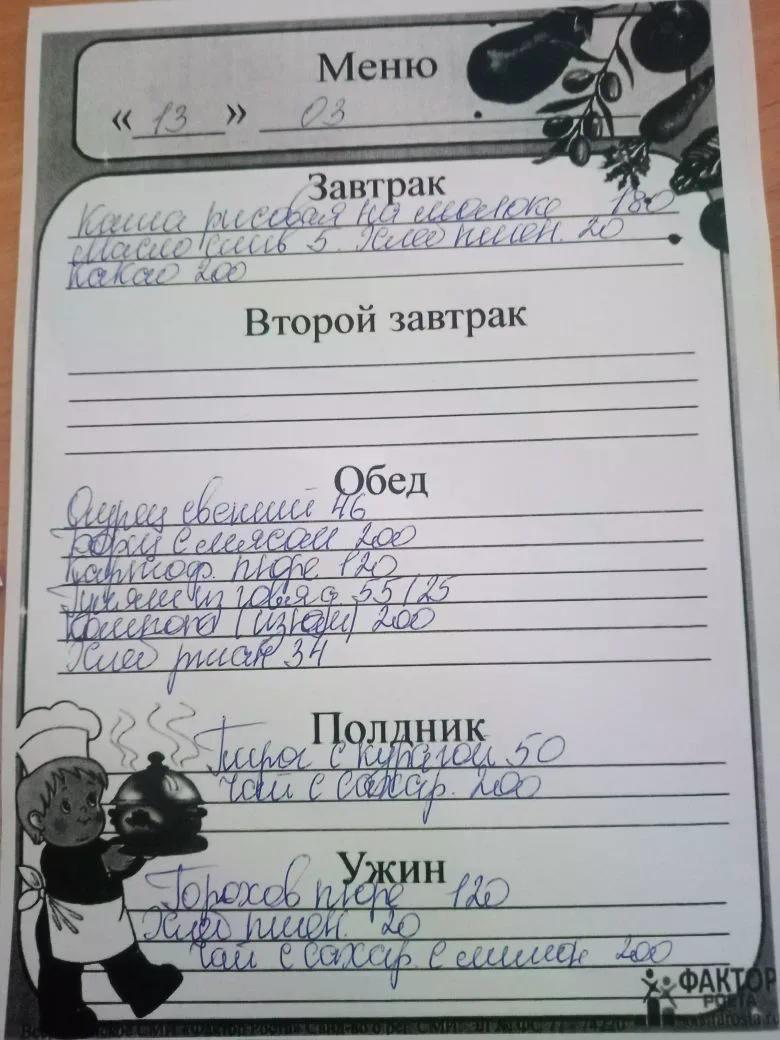 Меню
« 13 » 03
Завтрак
Каша рисовая на молоке 180
Масло слив 5. Хлеб пшен. 20
Какао 200
Второй завтрак
Обед
Огурец свежий 46
Борщ с мясом 200
Картоф. пюре 120
Гуляш из говяд 55/25
Компот (изюм) 200
Хлеб ржан 34
Полдник
Пирог с курагой 50
Чай с сахар. 200
Ужин
Горохов пюре 120
Хлеб пшен. 20
Чай с сахар. с лимон 200
ФАКТОР
РОСТА